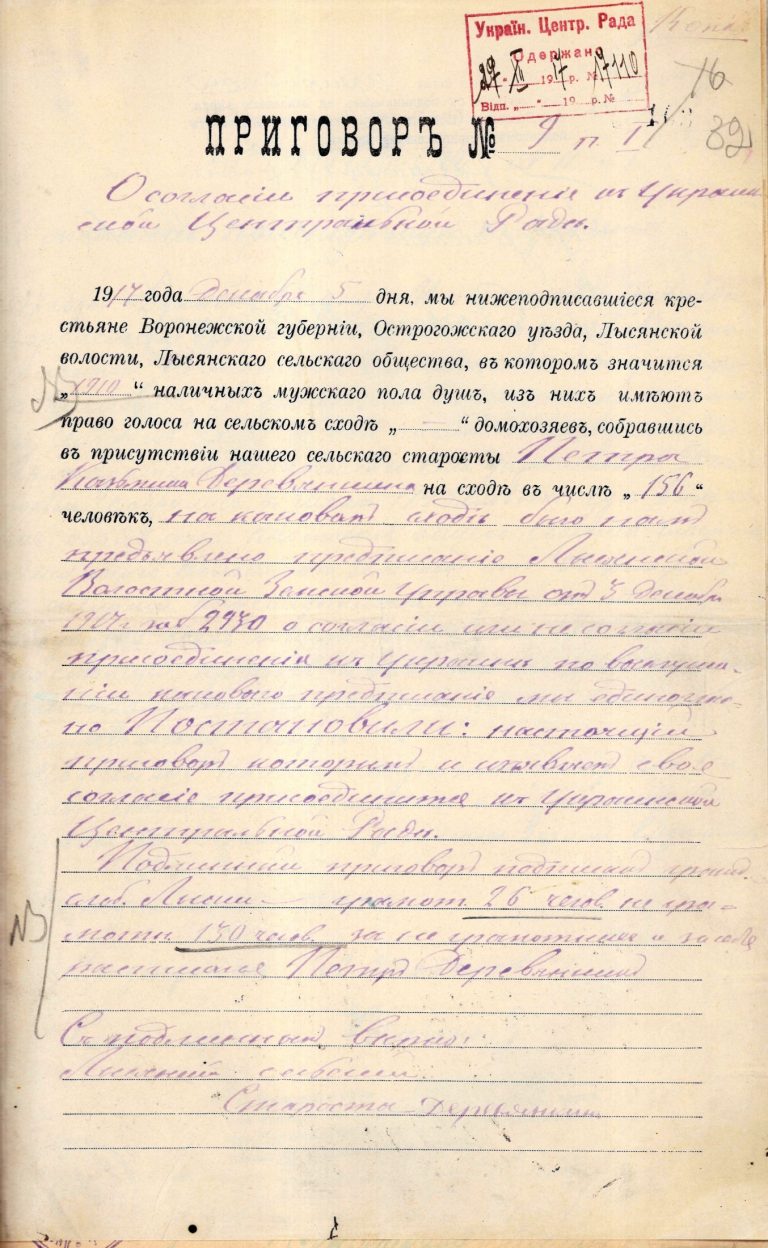 Копія
Україн. Центр. Рада
Одержано
„29“ XII 1917 р. № 17110
Відп. „—“ — 19— р. №
16
32
ПРИГОВОРЪ № 9 п. I
О согласіи присоединеніе къ Украин
ской Центральной Рады.
1917 года Декабря 5 дня, мы нижеподписавшіеся кре-
стьяне Воронежской губерніи, Острогожскаго уѣзда, Лысянской
волости, Лысянскаго сельскаго общества, въ которомъ значится
„1910“ наличныхъ мужскаго пола душъ, изъ нихъ имѣютъ
право голоса на сельскомъ сходѣ „—“ домохозяевъ, собравшись
въ присутствіи нашего сельскаго старосты Петра
Деревянкина на сходѣ въ числѣ „156“
человѣкъ, на каковомъ сходѣ было намъ
предъявлено предписаніе Лысянской
Волостной Земской Управы отъ 3 Декабря
1917 г. за № 2930 о согласіи или не согласіи
присоединенія къ Украинѣ по выслуша-
ніи каковаго предписаніе мы единоглас-
но Постановили: настоящій
приговоръ которимъ и свое
согласіе присоединится къ Украинской
Центральной Рады.
Подлинный приговоръ подписали гражд.
слоб. Лысян— грамот. 26 челов. не гра-
мотн. 130 челов. за не грамотныхъ и за себя
росписался Петръ Деревянкинъ
Съ подлиннымъ вѣрно:
Лысянскій сельскій
Староста Деревянкинъ